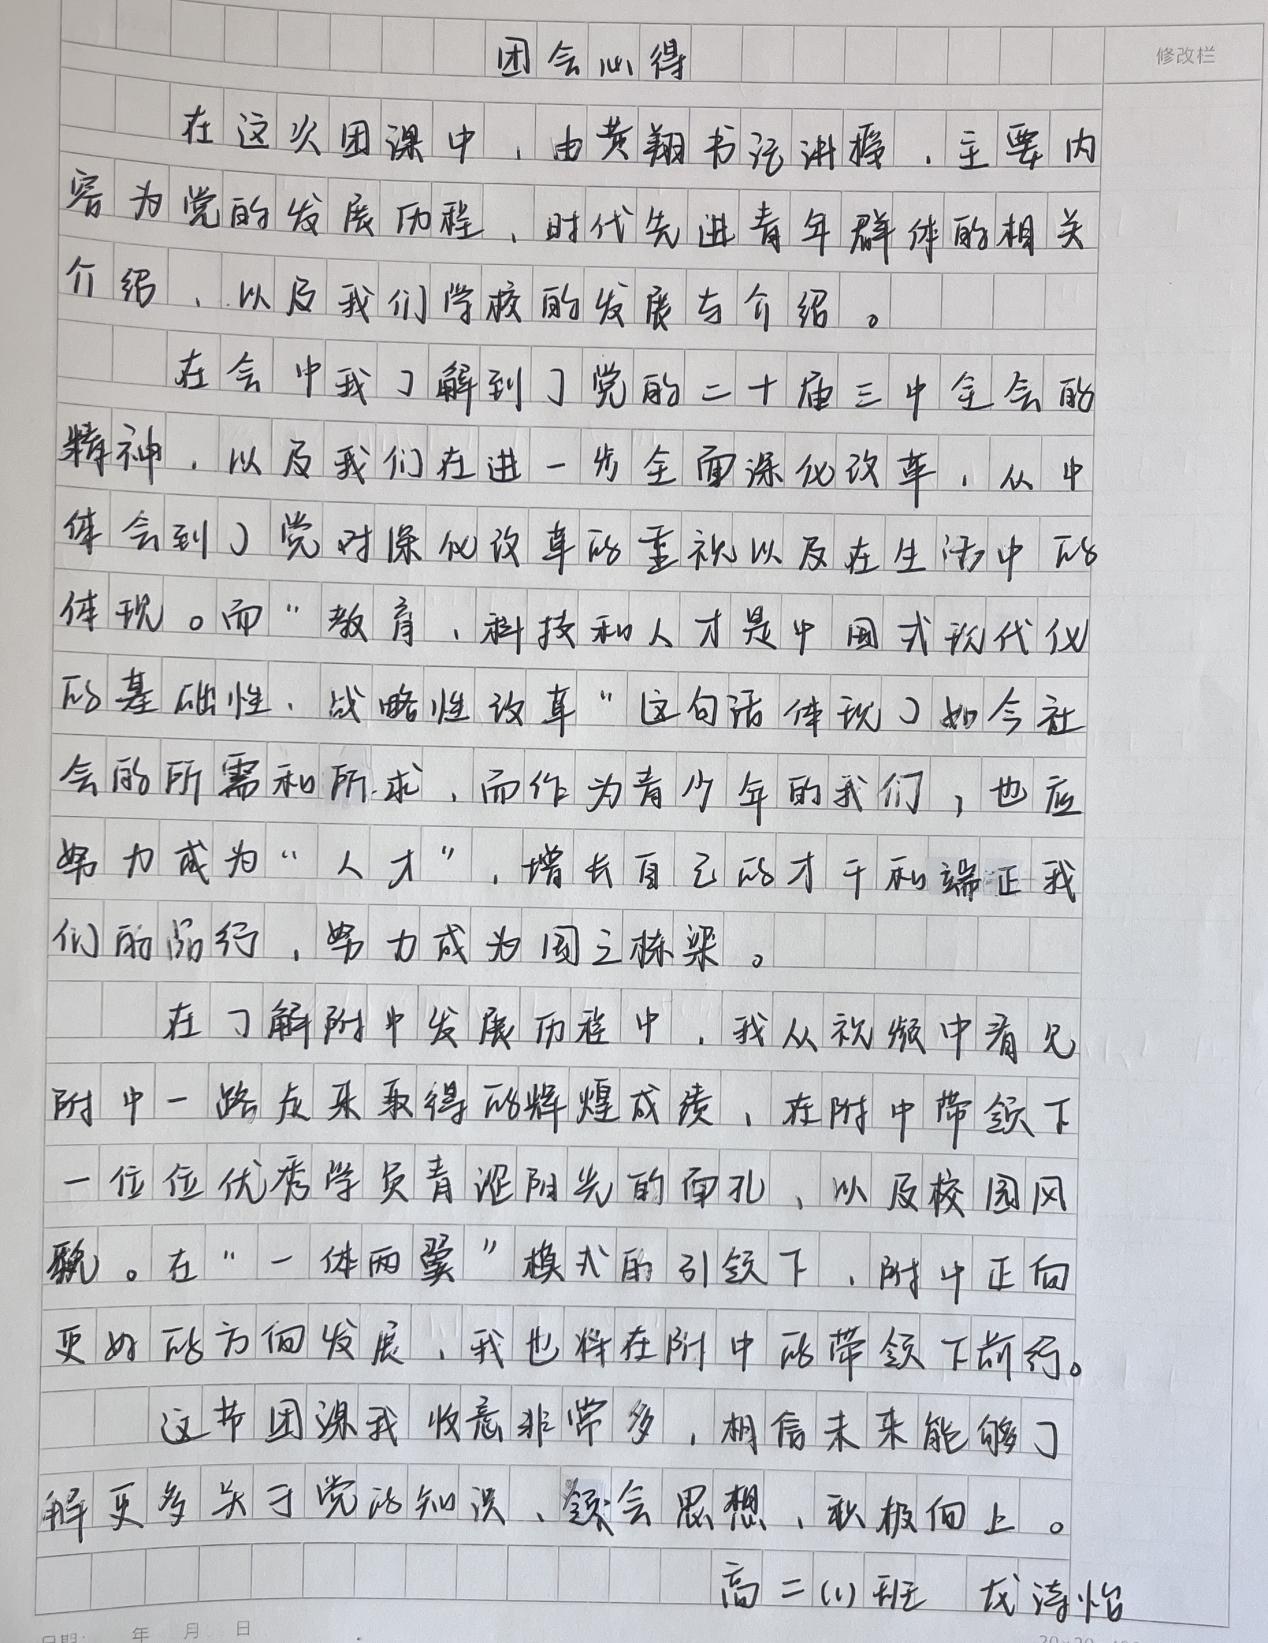 修改栏
团会心得
在这次团课中,由黄翔书记讲授,主要内
容为党的发展历程、时代先进青年群体的相关
介绍、以及我们学校的发展与介绍。
在会中我了解到了党的二十届三中全会的
精神,以及我们在进一步全面深化改革,从中
体会到了党对深化改革的重视以及在生活中的
体现。而“教育、科技和人才是中国式现代化
的基础性、战略性改革”这句话体现了如今社
会的所需和所求,而作为青少年的我们,也应
努力成为“人才”,增长自己的才干和端正我
们的品行,努力成为国之栋梁。
在了解附中发展历程中,我从视频中看见
附中一路走来取得的辉煌成绩、在附中带领下
一位位优秀学员青涩阳光的面孔、以及校园风
貌。在“一体两翼”模式的引领下,附中正向
更好的方向发展,我也将在附中的带领下前行。
这节团课我收意非常多,相信未来能够了
解更多关于党的知识、领会思想、积极向上。
高二(1)班 诗怡
日期: 年 月 日